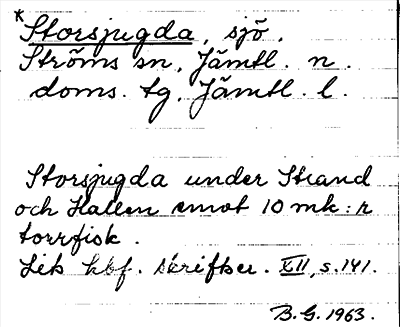 *Storsjugda, sjö.
Ströms sn, Jämtl. n.
doms. tg, Jämtl. l.
Storsjugda under Strand
och Hallen emot 10 mk:r
torrfisk.
hbf. Skrifter. XII, s. 141.
B.G. 1963.